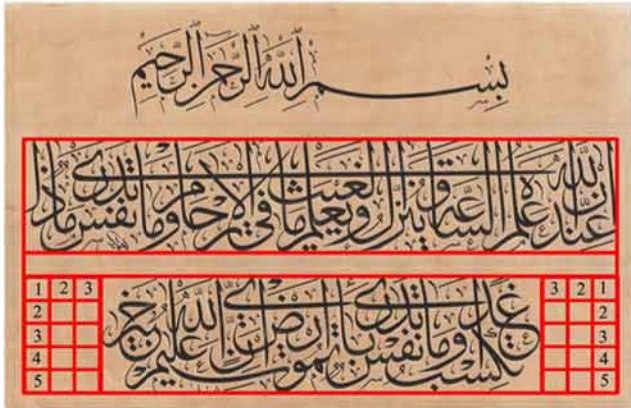 بِسْمِ اللَّهِ الرَّحْمَنِ الرَّحِيمِ
إن الله عنده علم الساعة وينزل الغيث ويعلم ما في الأرحام وما تدري نفس ماذا
تكسب غدا وما تدري نفس بأي أرض تموت إن الله عليم خبير
1 2 3 3 2 1
2 2
3 3
4 4
5 5